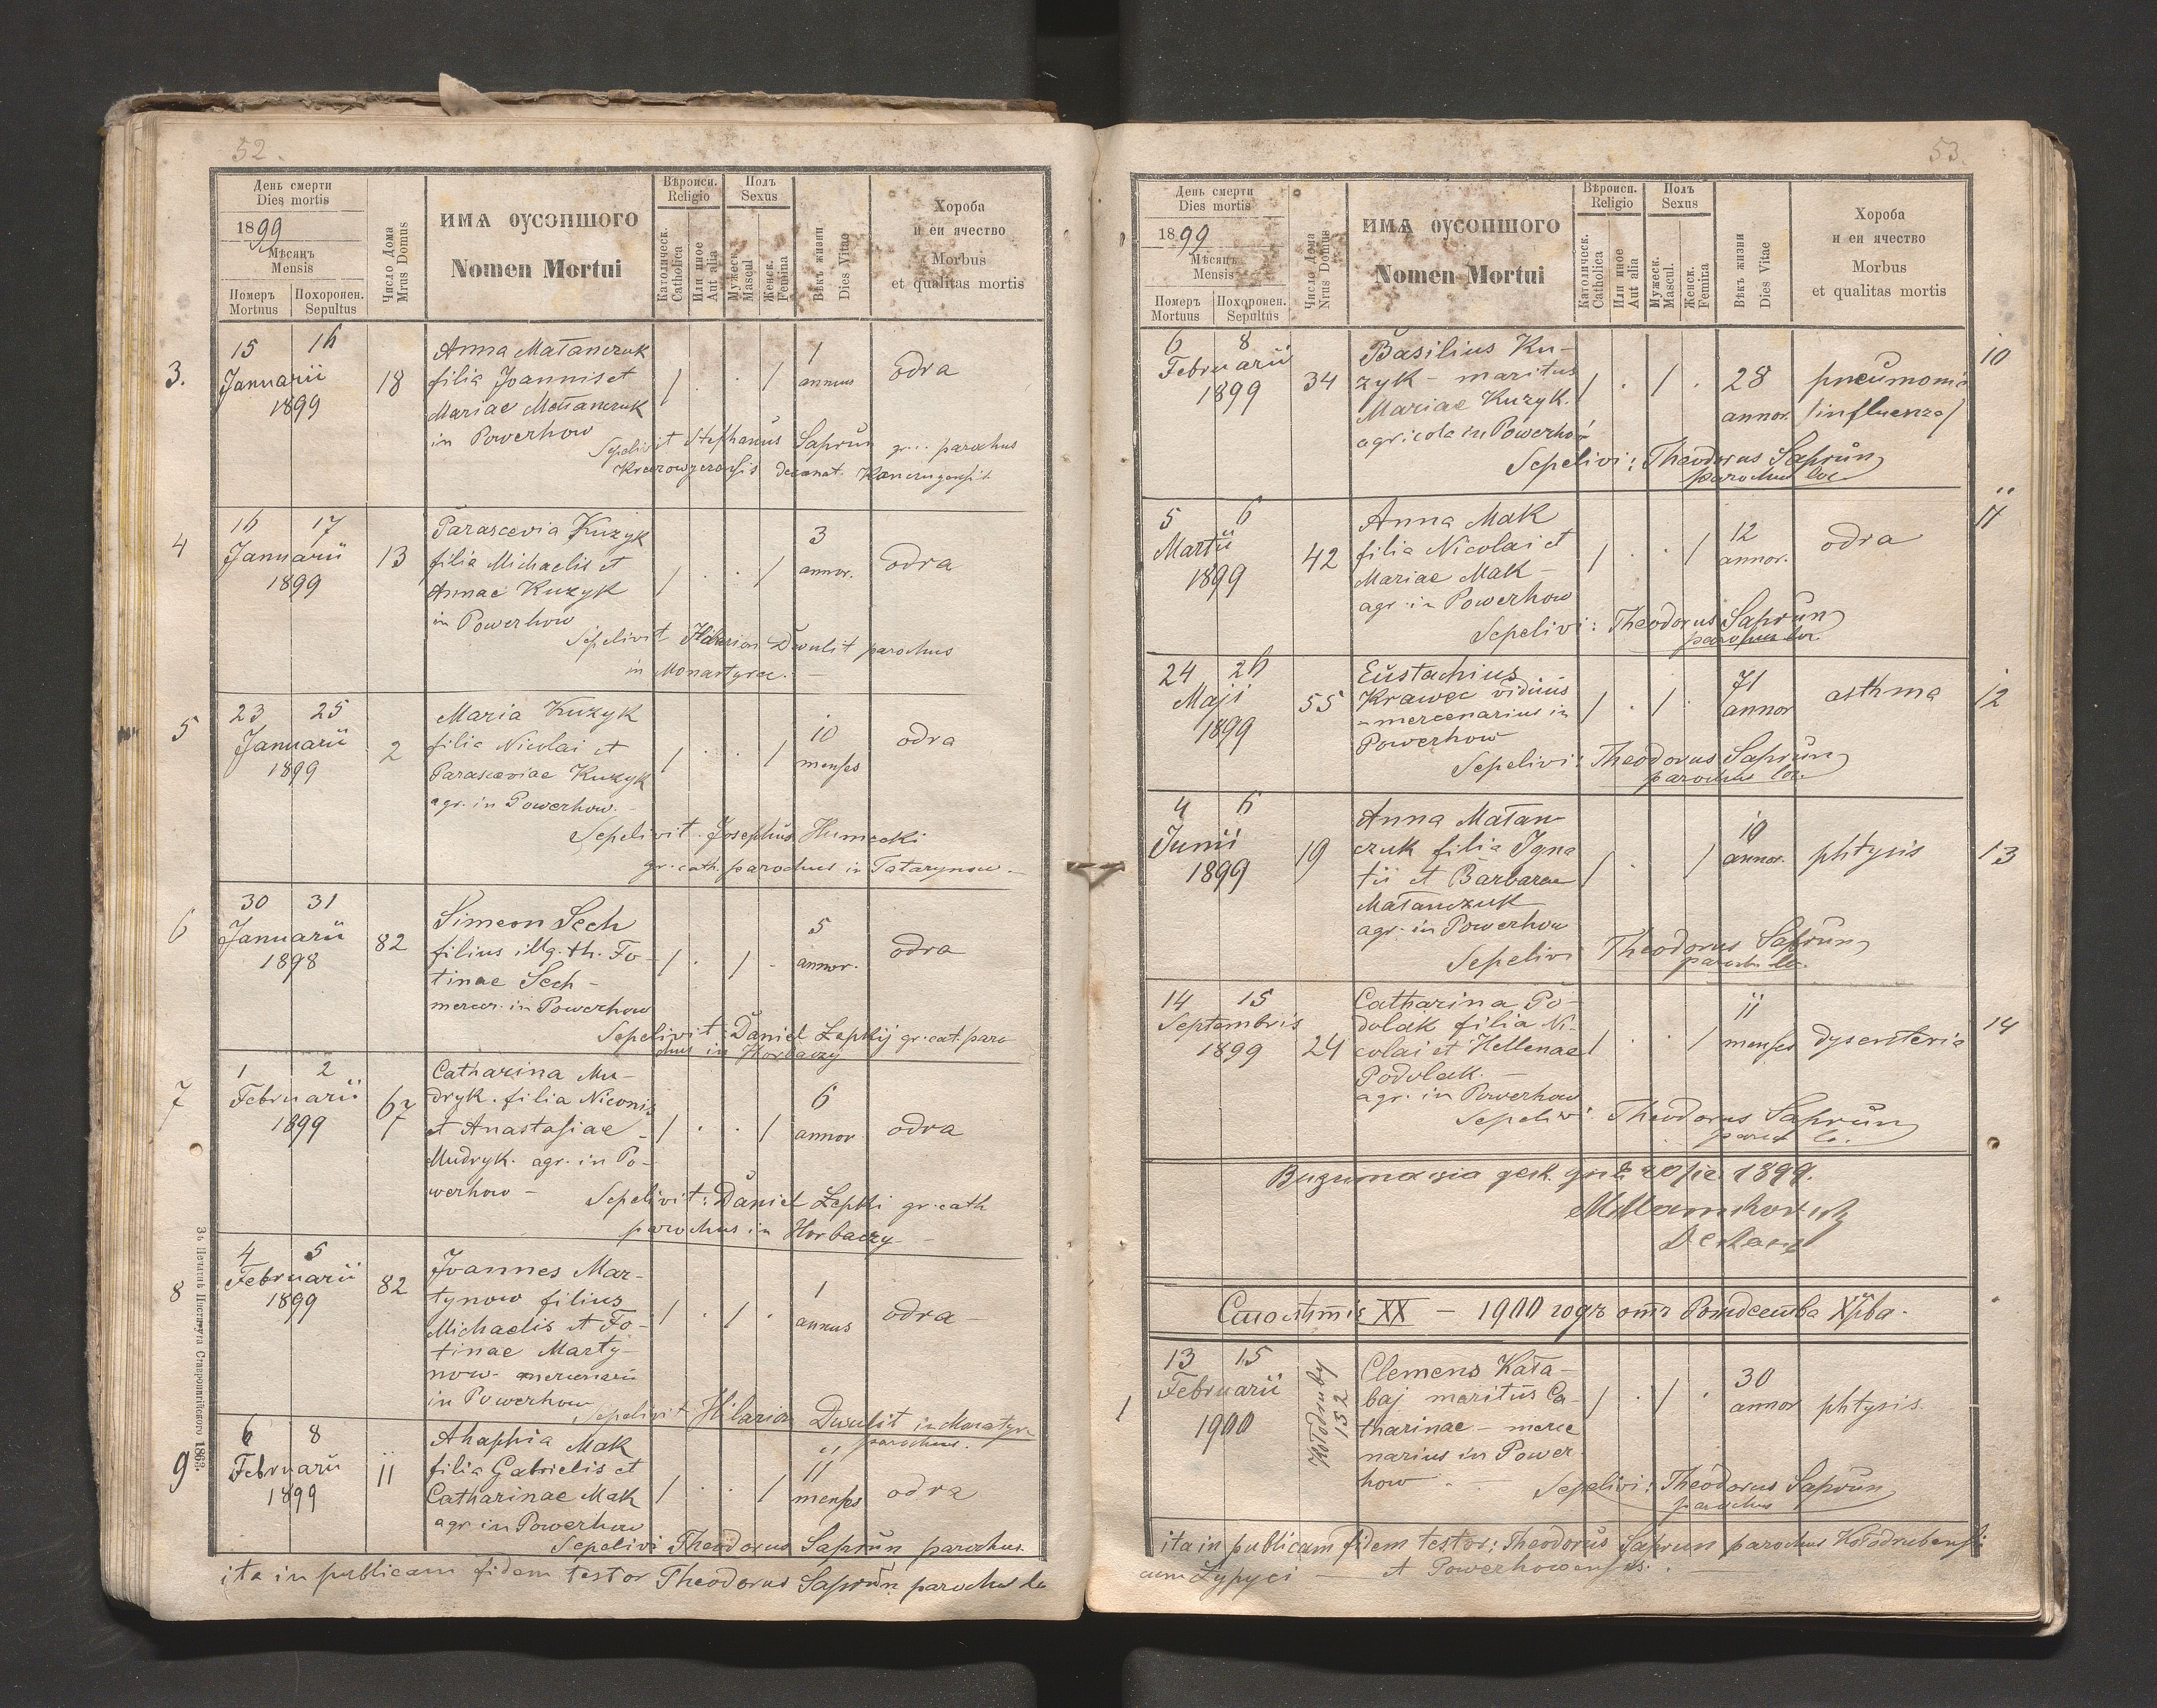 52.
День смерти
Dies mortis
1899
Мѣсяцъ
Mensis
Померъ
Mortuus
Похоронен.
Sepultus
Число Дома
Nrus Domus
ИМѦ ОУСОПШОГО
Nomen Mortui
Вѣроисп.
Religio
Католическ.
Catholica
Или иное
Aut alia
Полъ
Sexus
Мужеск.
Mascul
Женск.
Femina
Вѣкъ жизни
Dies Vitae
Хороба
и еи ячество
Morbus
et qualitas mortis
3.
15 16
Januarii
1899
18
Anna Matanczuk
filia Joannis et
Mariae Matanczuk
in Powerhow
1 . . 1
1
annus
odra
Sepelivit Stephanus Saprun gr. parochus
decanat.
4
16 17
Januarii
1899
13
Parascevia Kuzyk
filia Michaelis et
Annae Kuzyk
in Powerhow
1 . . 1
3
annor.
odra
Sepelivit Hilarion Duvulit parochus
in Monastyrec.
5
23 25
Januarii
1899
2
Maria Kuzyk
filia Nicolai et
Parasceviae Kuzyk
agr. in Powerhow.
1 . . 1
10
menses
odra
Sepelivit Josephus Humecki
gr. cath. parochus in Tatarynow
6
30 31
Januarii
1898
82
Simeon Sech
filius illg. th. Fo-
tinae Sech -
mercer. in Powerhow
1 . 1 .
5
annor.
odra
Sepelivit: Daniel Łepkij gr. cat. paro
chus in Horbaczy
7
1 2
Februarii
1899
67
Catharina Mu-
dryk. filia Niconis
et Anastasiae
Mudryk. agr. in Po-
werhow -
1 . . 1
6
annor
odra
Sepelivit: Daniel Łepki gr. cath
parochus in Horbaczy
8
4 5
Februarii
1899
82
Joannes Mar-
tynow filius
Michaelis et Fo-
tinae Marty-
now- mercenarii
in Powerhow
1 . 1 .
1
annus
odra
Sepelivit Hilarion Duvulit in Monastyr
parochus.
9
6 8
Februarii
1899
11
Ahaphia Mak
filia Gabrielis et
Catharinae Mak
agr in Powerhow
1 . . 1
11
menses
odra
Sepelivi Theodorus Saprun parochus
ita in publicam fidem testor Theodorus Saprun parochus lo
Зъ Печатнѣ Института Ставропигійского 1863.
53.
День смерти
Dies mortis
1899
Мѣсяцъ
Mensis
Померъ
Mortuus
Похоронен.
Sepultus
Число Дома
Nrus Domus
ИМѦ ОУСОПШОГО
Nomen Mortui
Вѣроисп.
Religio
Католическ.
Catholica
Или иное
Aut alia
Полъ
Sexus
Мужеск.
Mascul.
Женск.
Femina
Вѣкъ жизни
Dies Vitae
Хороба
и еи ячество
Morbus
et qualitas mortis
6 8
Februarii
1899
34
Basilius Ku-
zyk - maritus
Mariae Kuzyk.
agricola in Powerhow
1 . 1 .
28
annor.
pneumonia
/influenza/
10
Sepelivi: Theodorus Saprun
parochus loc
5 6
Martii
1899
42
Anna Mak
filia Nicolai et
Mariae Mak -
agr. in Powerhow
1 . . 1
12
annor.
odra
11
Sepelivi: Theodorus Saprun
parochus loc.
24 26
Maji
1899
55
Eustachius
Krawec viduus
- mercenarius in
Powerhow
1 . 1 .
71
annor
asthma
12
Sepelivi: Theodorus Saprun
parochus loc.
4 6
Junii
1899
19
Anna Matan
czuk filia Igna
tii et Barbarae
Matanczuk
agr. in Powerhow
1 . 1
10
annor.
phtysis
13
Sepelivi Theodorus Saprun
paroch. lo.
14 15
Septembris
1899
24
Catharina Po-
dolak filia Ni-
colai et Hellenae
Podolak. -
agr. in Powerhow
1 . . 1
11
menses
dysenteria
14
Sepelivi: Theodorus Saprun
paroch lo.
1899.
Столѣтіе XX - 1900 годъ отъ Рождества Хрва.
1
13 15
Februarii
1900
Kołodruby
152
Clemens Kała-
baj maritus Ca-
tharinae - merce
narius in Power-
how
1 . 1 .
30
annor
phtysis.
Sepelivi: Theodorus Saprun
parochus
ita in publicam fidem testor: Theodorus Saprun parochus Kołodrubensis
et Powerhowensis.